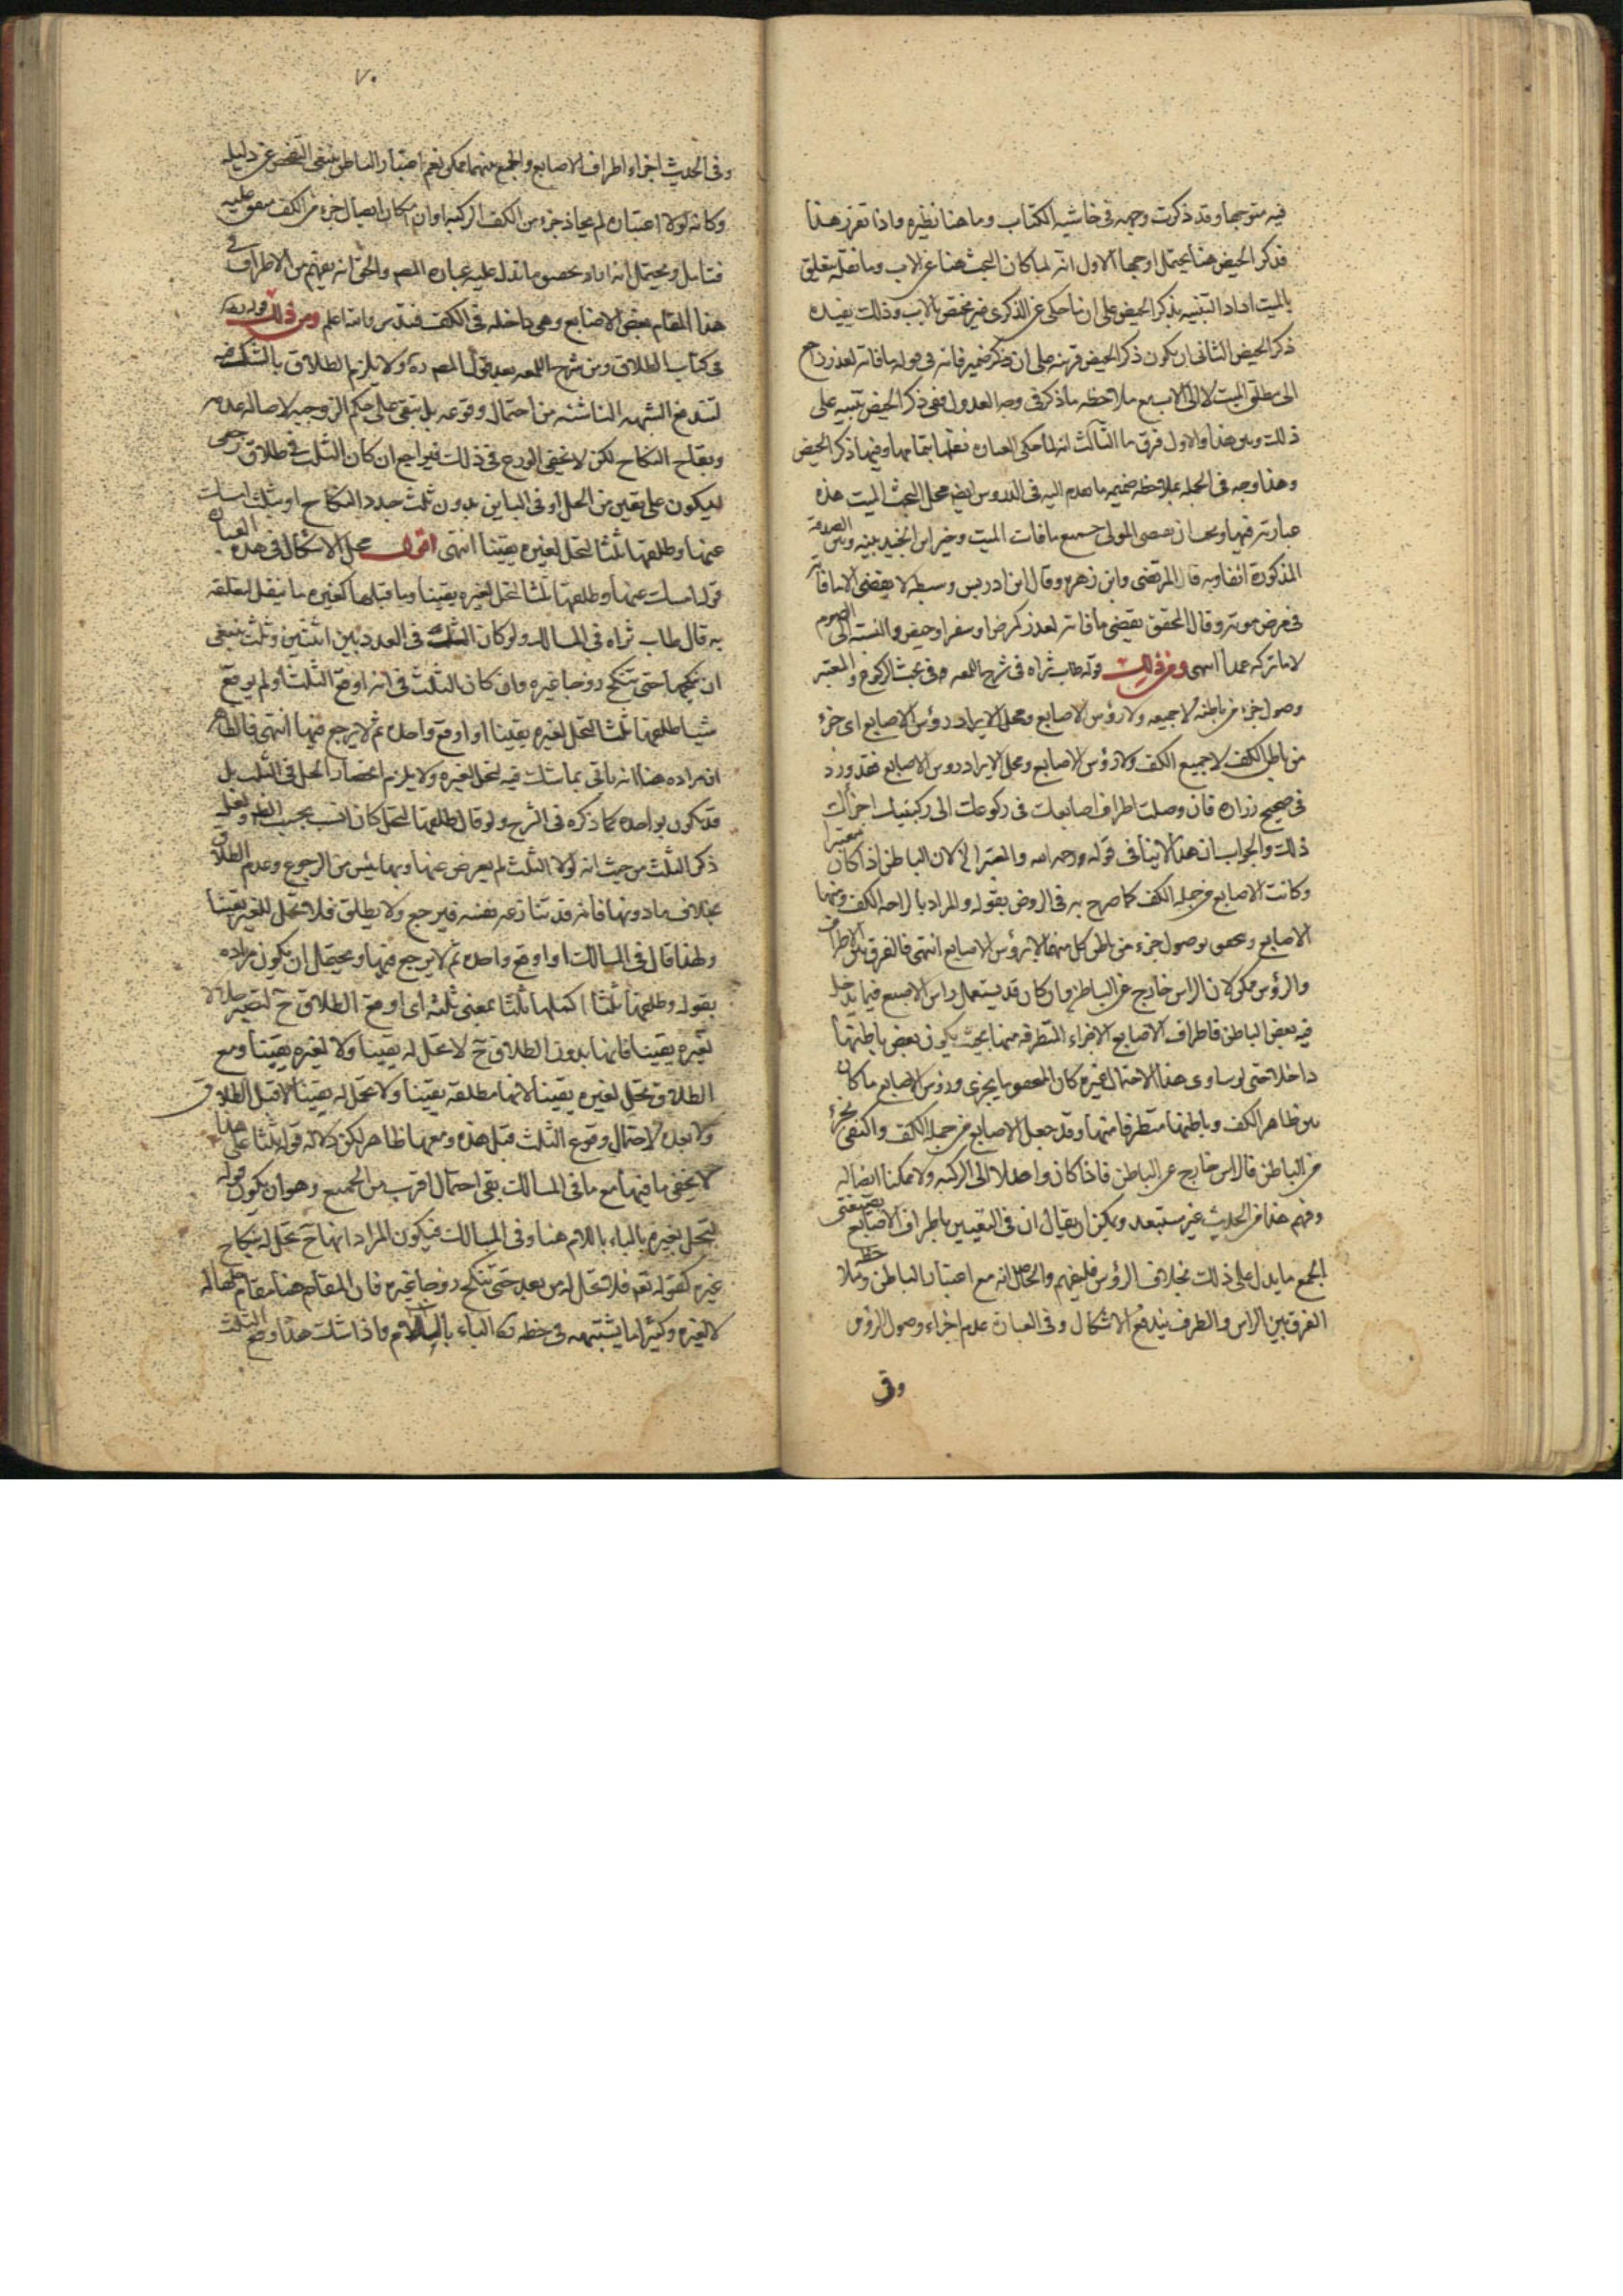 فيه متوجها وقد ذكرت وجهه في حاشية الكتاب وما هنا نظيره واذا تقرر هذا
فذكر الحيض هنا يحتمل اوجها الاول انه لما كان البحث هنا عن الاب وما نقله يتعلق
بالميت اراد التنبيه بذكر الحيض على ان ما حكى عن الذكرى غير مختص بالاب وذلك يفيده
ذكر الحيض الثاني ان يكون ذكر الحيض قرينة على ان ذكر ضمير فاته في قوله ما فاته لعذر راجع
الى مطلق الميت لا الى الاب مع ملاحظه ما ذكر في وجه العدول ففي ذكر الحيض تنبيه على
ذلك وبين هذا والاول فرق ما الثالث انه لما حكى العباره نقلها بتمامها وفيها ذكر الحيض
وهذا وجه في الجمله بملاحظه ضميمه ما تقدم اليه في الدروس ايضا محل البحث الميت هذه
عبارته فيها وبحث ان يقضي الولي جميع ما فات الميت وخير ابن الجنيد بينه وبين الصدقة
المذكورة انفا وبه قال المرتضى وابن زهره وقال ابن ادريس وسبطه لا يقضي الا ما فاته
في مرض موته وقال المحقق يقضي ما فاته لعذر كمرض او سفر او حيض والنسبة الى الصوم
لا ما تركه عمدا انتهى ومن ذلك قوله طاب ثراه في شرح اللمعه في بحث الركوع والمعتبر
وصول جزء من باطنه لا جميعه ولا رؤس الاصابع ومحل الايراد رؤس الاصابع اي جزء
من باطن الكف لا جميع الكف ولا رؤس الاصابع ومحل الايراد روس الاصابع فقد ورد
في صحيح زراره فان وصلت اطراف اصابعك في ركوعك الى ركبتيك اجزأك
ذلك والجواب ان هذا لا ينافي قوله رحمه الله والمعتبر الخ لان الباطن اذا كان معتبرا
وكانت الاصابع من جمله الكف كما صرح به في الروض بقوله والمراد بالراحه الكف ومنها
الاصابع ويتحقق بوصول جزء من باطن كل منهما لا برؤس الاصابع انتهى فالفرق بين الاطراف
والرؤس ممكن لان الراس خارج عن الباطن وان كان قد يستعمل راس الاصبع فيما يدخل
فيه بعض الباطن فاطراف الاصابع الاجزاء المتطرفه منها بحيث يكون بعض باطنها
داخلا حتى لو ساوى هذا الاحتمال غيره كان المقصود ما يجزي ورؤس الاصابع ما كان
بين ظاهر الكف وباطنها متطرفا منها وقد جعل الاصابع من جمله الكف واكتفى بجزء
من الباطن فالراس خارج عن الباطن فاذا كان واصلا الى الركبه ولا يمكننا ايصاله
وفهم هذا من الحديث غير مستبعد ويمكن ان يقال ان في التعبير باطراف الاصابع بصيغتي
الجمع ما يدل على ذلك بخلاف الرؤس فليفهم والحاصل انه مع اعتبار الباطن وملاحظه
الفرق بين الراس والطرف يندفع الاشكال وفي العباره عدم اجزاء وصول الرؤس
وفي
٧٠
وفي الحديث اجزاء اطراف الاصابع والجمع بينهما ممكن نعم اعتبار الباطن ينبغي الفحص عن دليله
وكانه لولا اعتباره لم يحاذ جزء من الكف الركبه او ان امكان ايصال جزء من الكف متوقف عليه
فتامل ويحتمل انه اراد بخصوص ما تدل عليه عباره المص والحق انه يفهم من الاطراف في
هذا المقام بعض الاصابع وهي داخله في الكف فتدبر والله اعلم ومن ذلك قوله
في كتاب الطلاق من شرح اللمعه بعد قول المص ره ولا يلزم الطلاق بالشك فيه
لتندفع الشبهه الناشئه من احتمال وقوعه بل تبقى على حكم الزوجيه لاصاله عدمه
وبقاء النكاح لكن لا يخفى الورع في ذلك فيراجع ان كان الشك في طلاق رجعي
ليكون على يقين من الحل او في البائن بدون ثلث جدد النكاح او بثلث امسك
عنها وطلقها ثلثا لتحل لغيره يقينا انتهى اقول محل الاشكال في هذه العباره
قوله امسك عنها وطلقها ثلثا لتحل لغيره يقينا وما قبلها كغيره ما ينقل لتعلقه
به قال طاب ثراه في المسالك ولو كان الشك في العدد بين اثنتين وثلث ينبغي
ان ينكحها حتى تنكح زوجا غيره وان كان الشك في انه اوقع الثلث او لم يوقع
شيئا طلقها ثلثا لتحل لغيره يقينا او اوقع واحده ثم لا يرجع فيها انتهى فالظاهر
ان مراده هنا انه ياتي بما شك فيه لتحل لغيره ولا يلزم انحصار الحل في الثلث بل
قد يكون بواحده كما ذكره في الشرح ولو قال طلقها لتحل كان انسب بحسب
ذكر الثلث من حيث انه لولا الثلث لم يعرض عنها وبها يئس من الرجوع وعدم الطلاق
بخلاف ما دونها فانه قد تنازعه نفسه فيرجع ولا يطلق فلا تحل للغير يقينا
ولهذا قال في المسالك او اوقع واحده ثم لا يرجع فيها ويحتمل ان يكون مراده
بقوله وطلقها ثلثا اكملها ثلثا بمعنى ثلثه اي اوقع الطلاق ح لتصير حلالا
لغيره يقينا فانها بدون الطلاق ح لا تحل له يقينا ولا لغيره يقينا ومع
الطلاق تحل لغيره يقينا لانها مطلقه يقينا ولا تحل له يقينا لا قبل الطلاق
ولا بعده لاحتمال وقوع الثلث قبل هذه ومعها ظاهر لكن دلاله قوله ثلثا على هذا
لا يخفى ما فيها مع ما في المسالك بقي احتمال اقرب من الجميع وهو ان يكون قوله
لتحل بغيره بالباء باللام هنا وفي المسالك فيكون المراد انها ح تحل له بنكاح
غيره كقوله تعم فلا تحل له من بعد حتى تنكح زوجا غيره فان المقام هنا مقام حلها له
لا لغيره وكثيرا ما يشتبه في خطه ره الباء باللام واذا شك هذا وقع الثلث